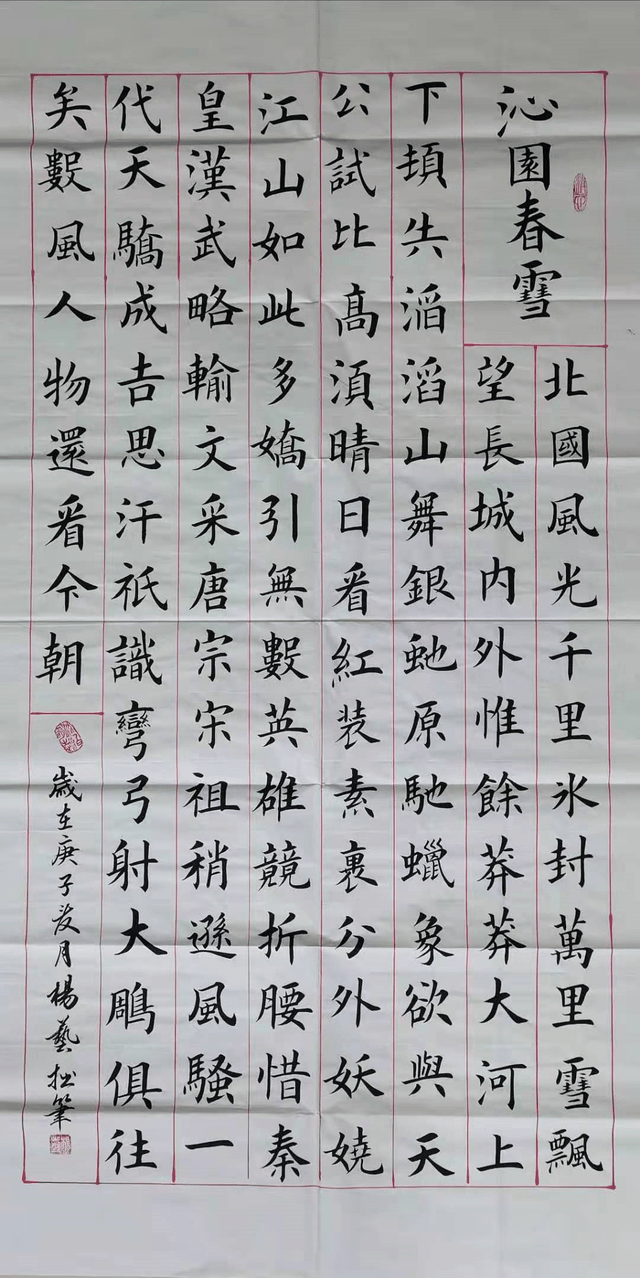 沁園春雪
北國風光千里氷封萬里雪飄
望長城内外惟餘莽莽大河上
下頓失滔滔山舞銀虵原馳蠟象欲與天
公試比髙須晴日看紅装素裹分外妖嬈
江山如此多嬌引無數英雄競折腰惜秦
皇漢武略輸文采唐宗宋祖稍遜風騷一
代天驕成吉思汗祇識彎弓射大鵰俱往
矣數風人物還看今朝
歲在庚子月楊藝筆